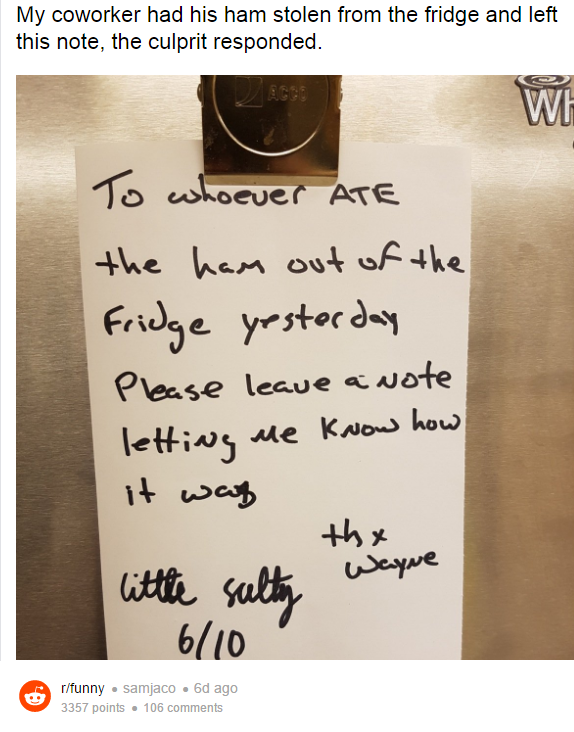 My coworker had his ham stolen from the fridge and left
this note, the culprit responded.
ACCO
Wh
To whoever ATE
the ham out of the
Fridge yesterday
Please leave a note
letting me know how
it was
thx
Wayne
little salty
6/10
r/funny • samjaco • 6d ago
3357 points • 106 comments